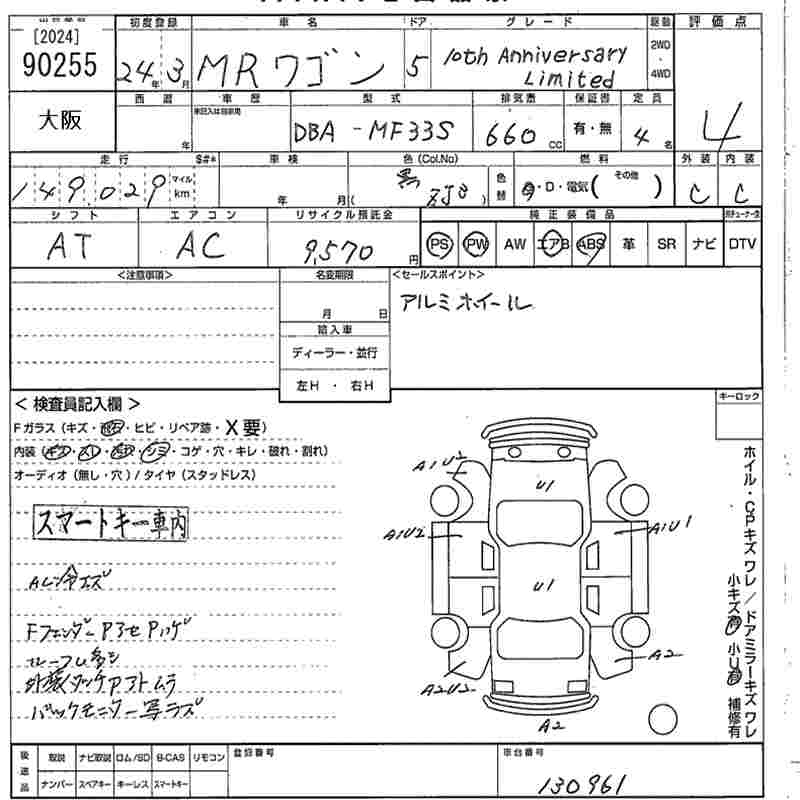 [2024]
90255
大阪
初度登録
24年3月
車名
MRワゴン
ドア
5
グレード
10th Anniversary
Limited
駆動
2WD
・
4WD
評価点
4
西暦
年
車歴
型式
DBA-MF33S
排気量
660cc
保証書
有・無
定員
4名
走行
149,029
マイル
km
S#*
車検
年 月
色(Col.No)
黒
( ZJ3 )
色替
燃料
・D・電気( その他 )
外装
C
内装
C
シフト
AT
エアコン
AC
リサイクル預託金
9,570円
純正装備品
PS PW AW エアB ABS 革 SR ナビ DTV
<注意事項>
名変期限
月 日
輸入車
ディーラー・並行
左H ・ 右H
<セールスポイント>
アルミホイール
< 検査員記入欄 >
Fガラス(キズ・ ・ヒビ・リペア跡・X要)
内装(キズ・ ・ ・シミ・コゲ・穴・キレ・破れ・割れ)
オーディオ(無し・穴)/タイヤ(スタッドレス)
スマートキー車内
キーロック
ホイル・CPキズ ワレ/ドアミラーキズ ワレ
小キズ 小U 補修有
A1U2
U1
A1U2
A1U1
U1
A2U2
A2
A2
後送品
取説 ナビ取説 ロム/SD B-CAS リモコン
ナンバー スペアキー キーレス スマートキー
登録番号
車台番号
130961